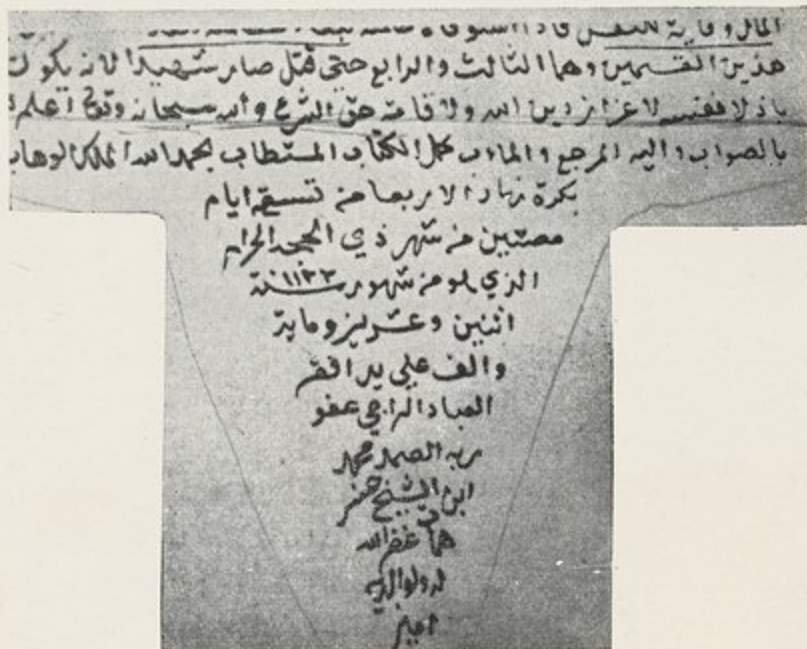 المال وقاية للنفس فاذا استوى
هذين القسمين وهما الثالث والرابع حتى قتل صار شهيدا لانه يكون
باذلا نفسه لاعزاز دين الله ولاقامة حق الشرع والله سبحانه وتعالى اعلم
بالصواب واليه المرجع والماب كمل الكتاب المستطاب بحمد الله الملك الوهاب
بكرة نهار الاربعا من تسعة ايام
مضين من شهر ذي الحجة الحرام
الذي هو من شهور سنة ١١٢٢
اثنين وعشرين وماية
والف على يد افقر
العباد الراجي عفو
ربه الصمد محمد
ابن الشيخ
غفر الله
له ولوالديه
امين